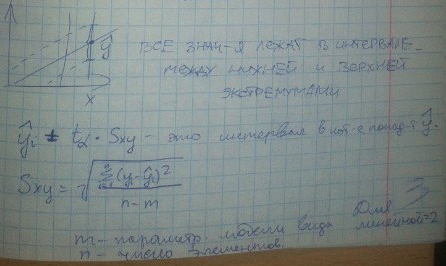 ŷ
x
ВСЕ ЗНАЧ-Я ЛЕЖАТ В ИНТЕРВАЛЕ
МЕЖДУ НИЖНЕЙ И ВЕРХНЕЙ
ЭКСТРЕМУМАМИ
ŷi ± tα · Sxy - это интервал в кот-е попад-т ŷ.
Sxy = √(Σ(yi-ŷi)² / n-m)
Для
m - параметр. модели вида линейной=2
n - число элементов